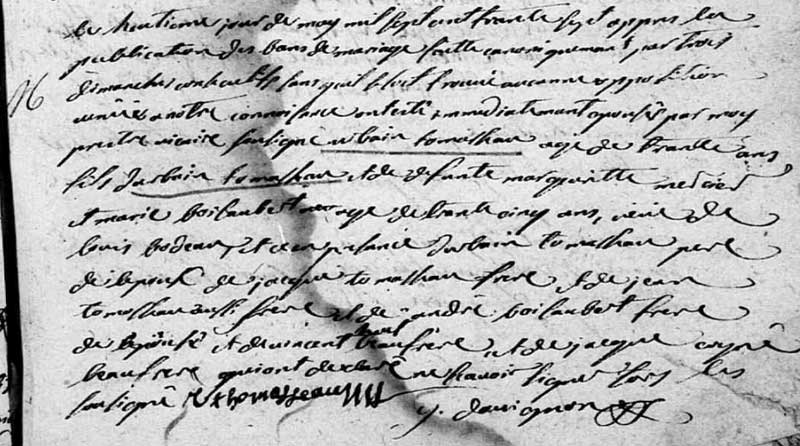 le huitieme jour de may mil sept cent trante sept appres la
publication des bans de mariage faitte canoniquemant par trois
dimanches consecutifs sans quil se soit trouvé aucunne opposition
16
venüe a notre connoisance ont été immediatemant epousés par moy
pretre vicaire sousigné urbain tomasseau agé de trante ans
fils durbain tomasseau et de defunte margueritte mercier
et marie boilaubert agé de trante cinq ans, veuve de
louis bodeau, et ce en presance durbain tomasseau pere
de lepoux de jacque tomasseau frere et de jean
tomasseau aussi frere et de andré boilaubert frere
de lepousé et de vincent beaufrere et de jacque
beaufrere qui ont declaré ne scavoir signer fors les
sousignés thomasseau